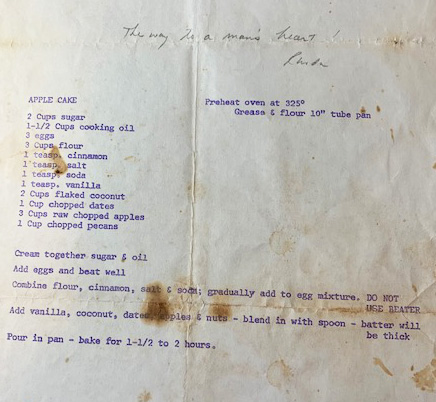 The way to a man's heart
APPLE CAKE
2 Cups sugar
1-1/2 Cups cooking oil
3 eggs
3 Cups flour
1 teasp. cinnamon
1 teasp. salt
1 teasp. soda
1 teasp. vanilla
2 Cups flaked coconut
1 Cup chopped dates
3 Cups raw chopped apples
1 Cup chopped pecans
Preheat oven at 325°
Grease & flour 10" tube pan
Cream together sugar & oil
Add eggs and beat well
Combine flour, cinnamon, salt & soda; gradually add to egg mixture. DO NOT
USE BEATER
Add vanilla, coconut, dates, apples & nuts - blend in with spoon - batter will
be thick
Pour in pan - bake for 1-1/2 to 2 hours.